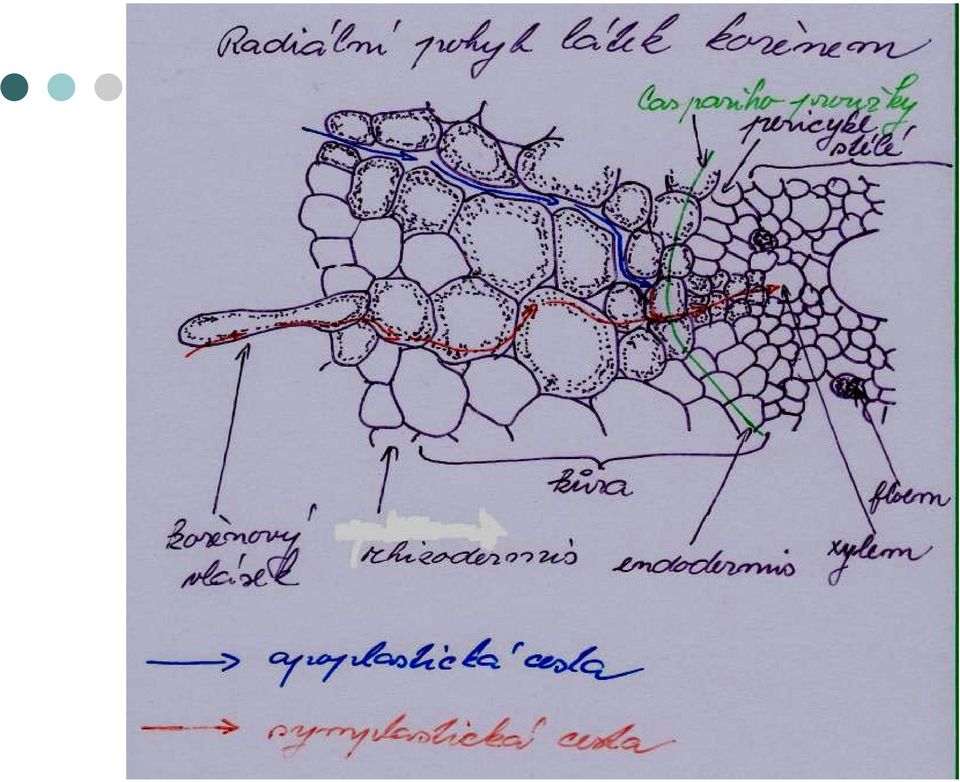 Radiální pohyb látek kořenem
Caspariho proužky
pericykl
stélé
kůra
floem
kořenový
vlásek
rhizodermis
endodermis
xylem
apoplastická cesta
symplastická cesta